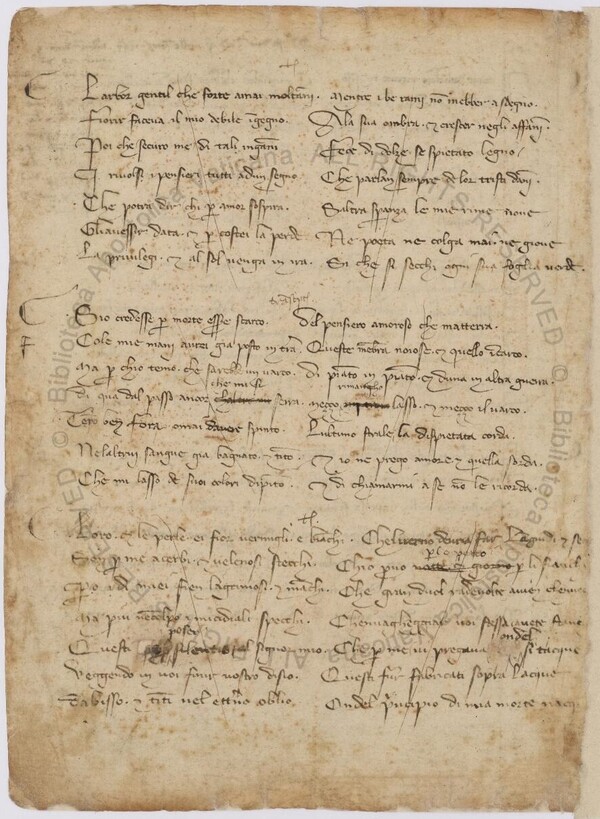 Larbor gentil che forte amai moltanni. Mentre i be rami nō mebber a sdegno.
Fiorir faceva il mio debile īgegno. A la sua ombra. & crescer negli affanni.
Poi che securo me di tali ingāni Fece di dolze se spietato legno.
I rivolsi i pensieri tutti ad un segno Che parlan sempre de lor tristi dāni.
Che potra dir chi p̄ amor sospira. Saltra sperāza le mie rime nove
Gliavessir data. & p̄ costei la perde. Ne poeta ne colga mai. ne giove
La privilegi. & al sol venga in ira. Si che si secchi ogni sua foglia verde.
Sio credesse p̄ morte essere scarco. Del pensiero amoroso che matterra.
Cole mie mani avrei gia posto in t̄ra Queste mēbra noiose. & quello incarco.
Ma p̄ chio temo. che sarebbe un varco. Di piāto in piāto. & duna in altra guerra.
che mi si
rimango
Di qua dal passo ancor serra. Mezzo lasso. & mezzo il varco.
Tēpo ben fora omai davere spinto. Lultimo strale la dispietata corda.
Nelaltrui sangue gia bagnato. & tīto. Et io ne prego amore. & quella sorda.
Che mi lasso de suoi colori dipīto. Et di chiamarmi a se nō le ricorda.
Loro. & le perle. ei fior vermigli. e biāchi. Chel verno devria far languidi & se
p̄ lo petto
Son p̄ me acerbi. & velenosi stecchi. Chio p̄vo & p̄ li fianchi
P̄o i dì miei fien lagrimosi. & māchi. Che gran duol rade volte aven che nve
Ma piu nēcolpo i micidiali specchi. Chen vagheggiar voi stessa avete
poser
ondel
Questi silentio al signor mio. Che p̄ me vi pregava si tacque
Veggendo in voi finir vostro disio. Questi fur fabricati sopra lacque
Dabisso. & tīti nel ett̄no oblio. Ondel p̄ncipio di mia morte nacq